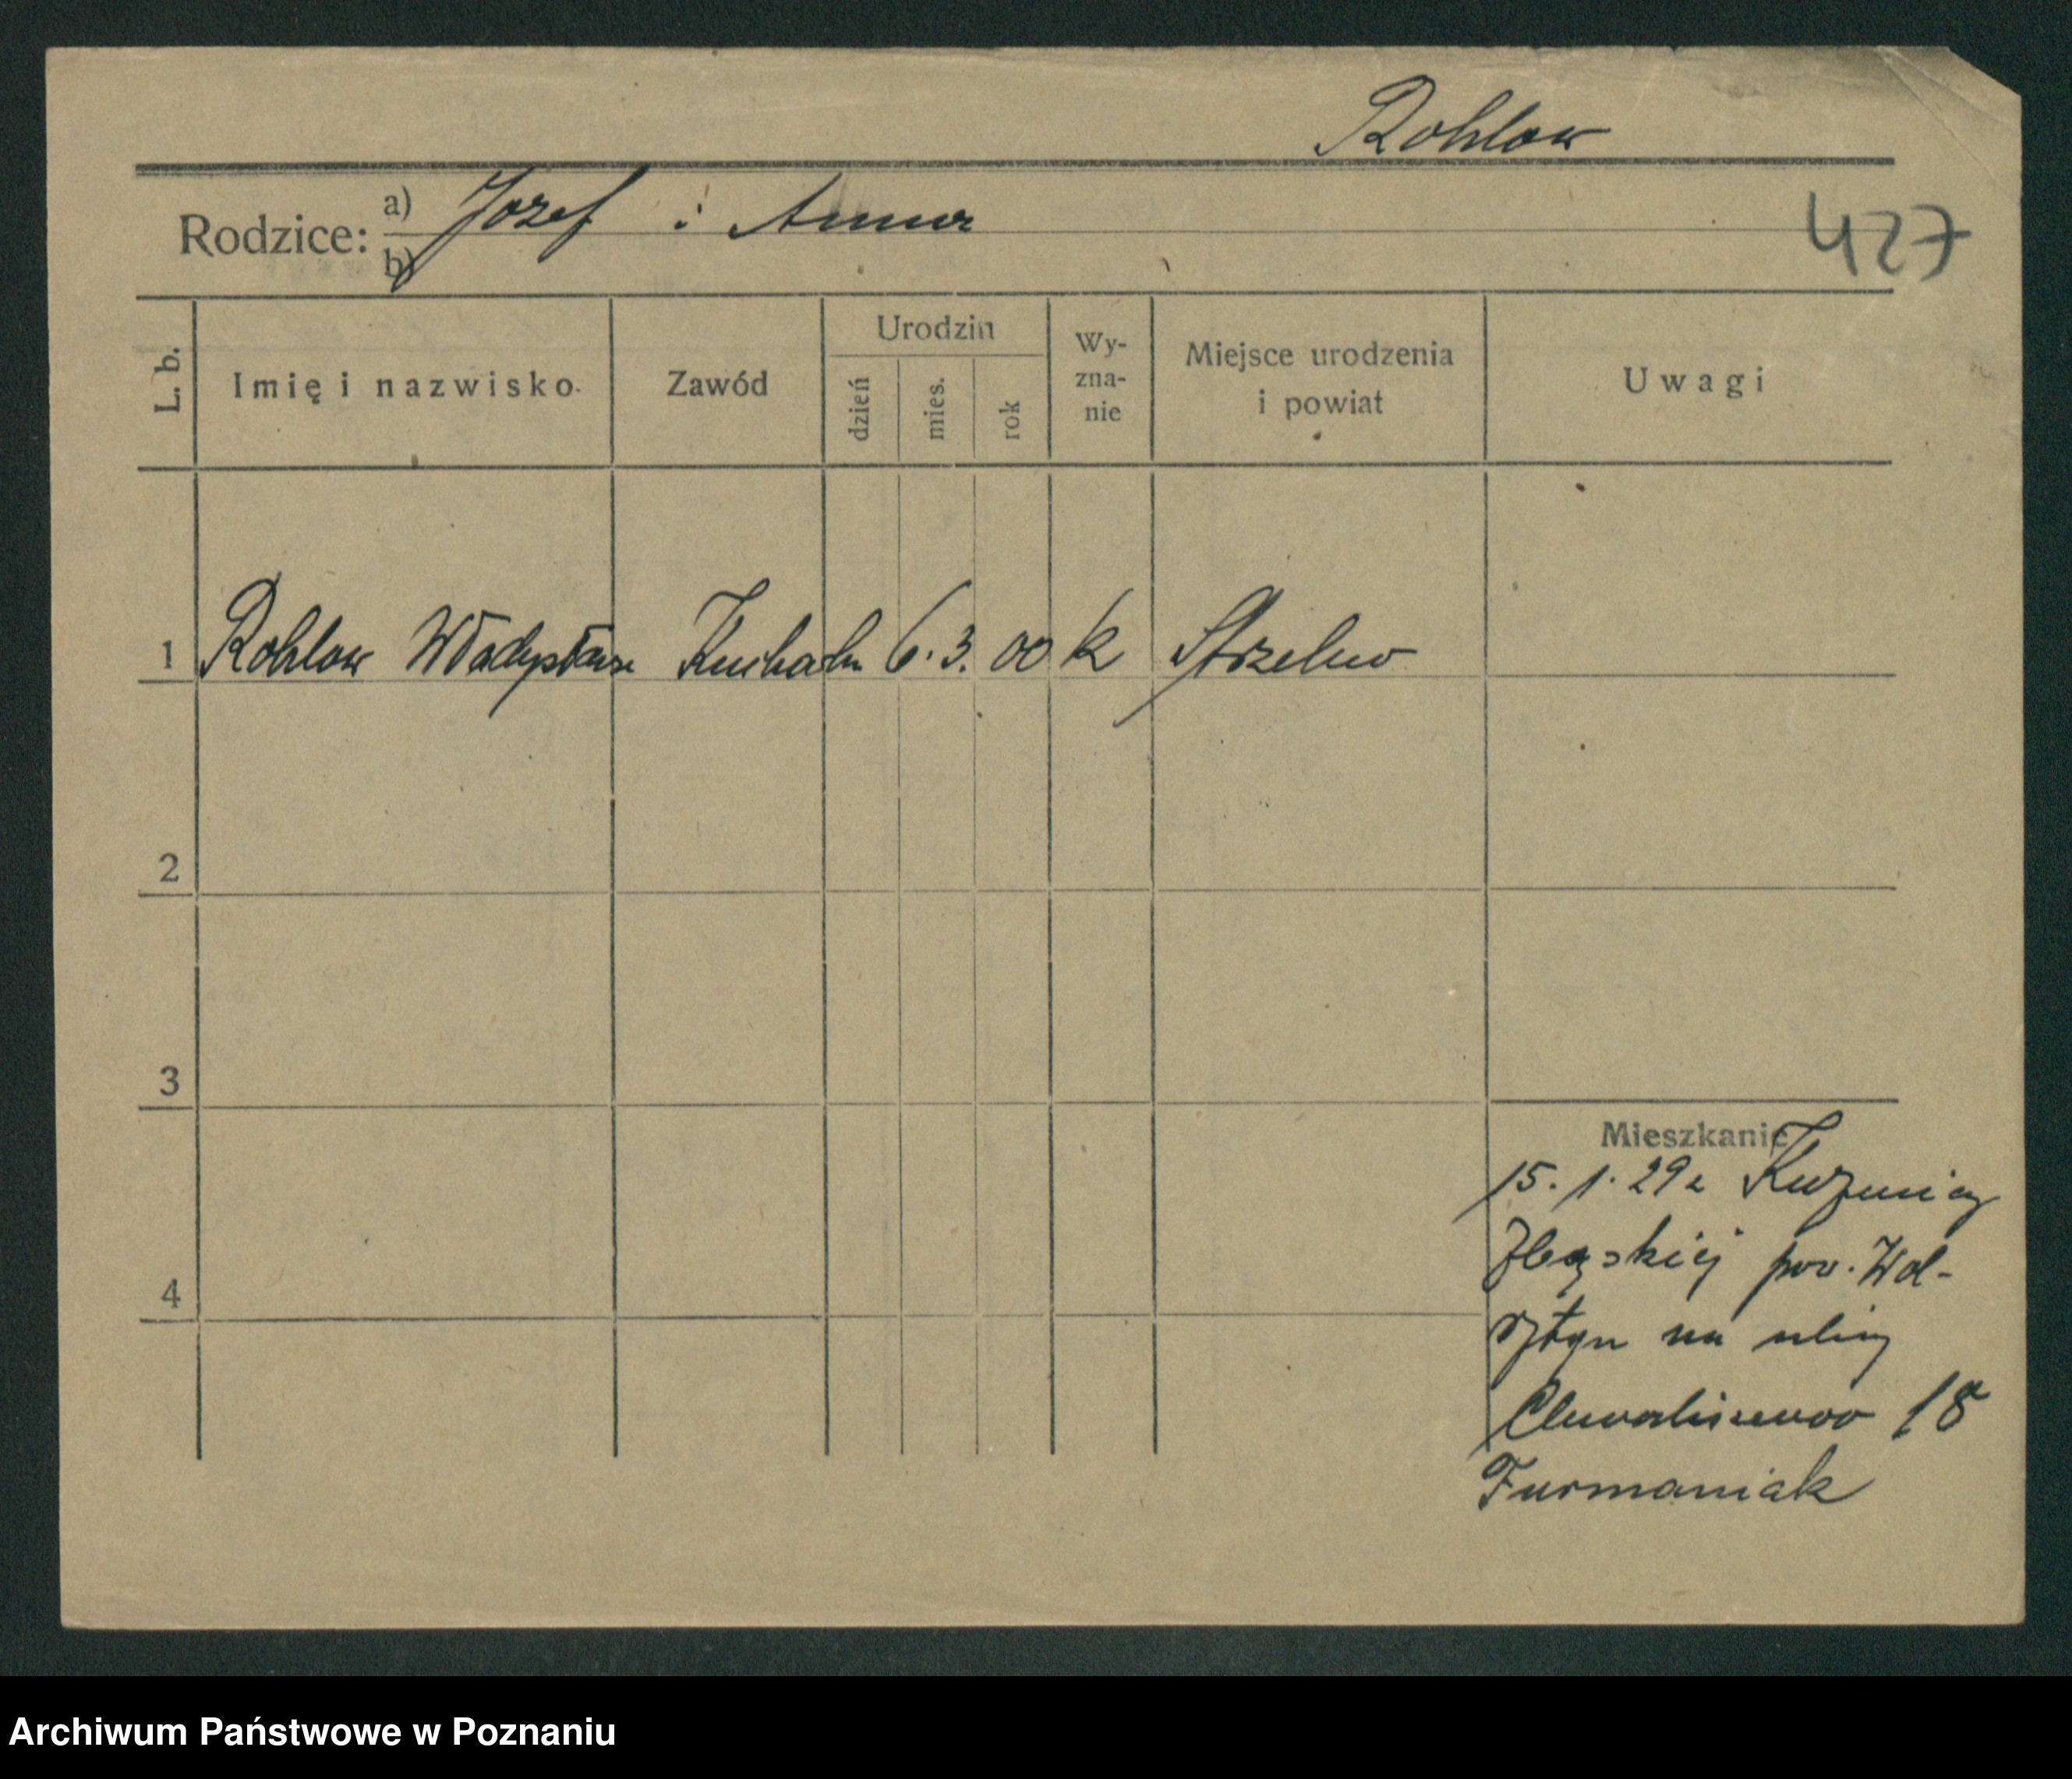 Rohlow
Rodzice: a) Jozef i Anna
b)
427
L. b.
Imię i nazwisko
Zawód
Urodzin
dzień
mies.
rok
Wy-
zna-
nie
Miejsce urodzenia
i powiat
Uwagi
1 Rohlow Władysław 6. 3. 00 k Strzelno
2
3
4
Mieszkanie
15. 1. 29 z Kuźnicy
Zbąskiej pow. Wol-
sztyn na ulicę
Chwaliszewo 18
Furmaniak
Archiwum Państwowe w Poznaniu